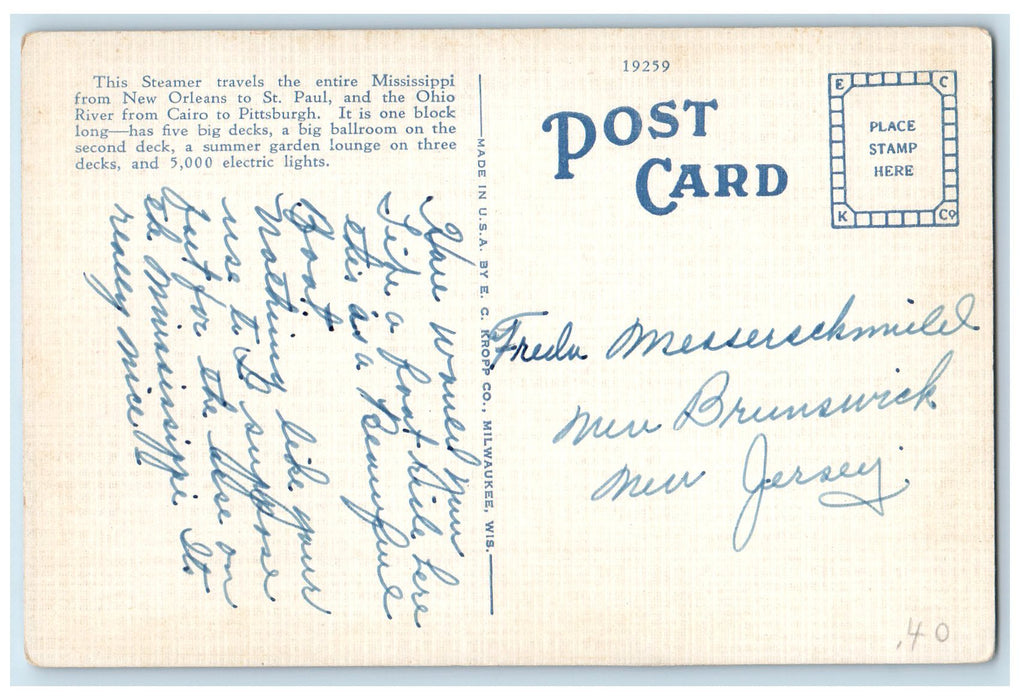 This Steamer travels the entire Mississippi
from New Orleans to St. Paul, and the Ohio
River from Cairo to Pittsburgh. It is one block
long—has five big decks, a big ballroom on the
second deck, a summer garden lounge on three
decks, and 5,000 electric lights.
a boat ride here
this is a
Boat
Nothing like your
use to I suppose
Just for the use on
the Mississippi Its
really nice
MADE IN U.S.A. BY E. C. KROPP CO., MILWAUKEE, WIS.
19259
POST
CARD
E C
PLACE
STAMP
HERE
K Co
Freda Messerschmidt
New Brunswick
New Jersey
.40